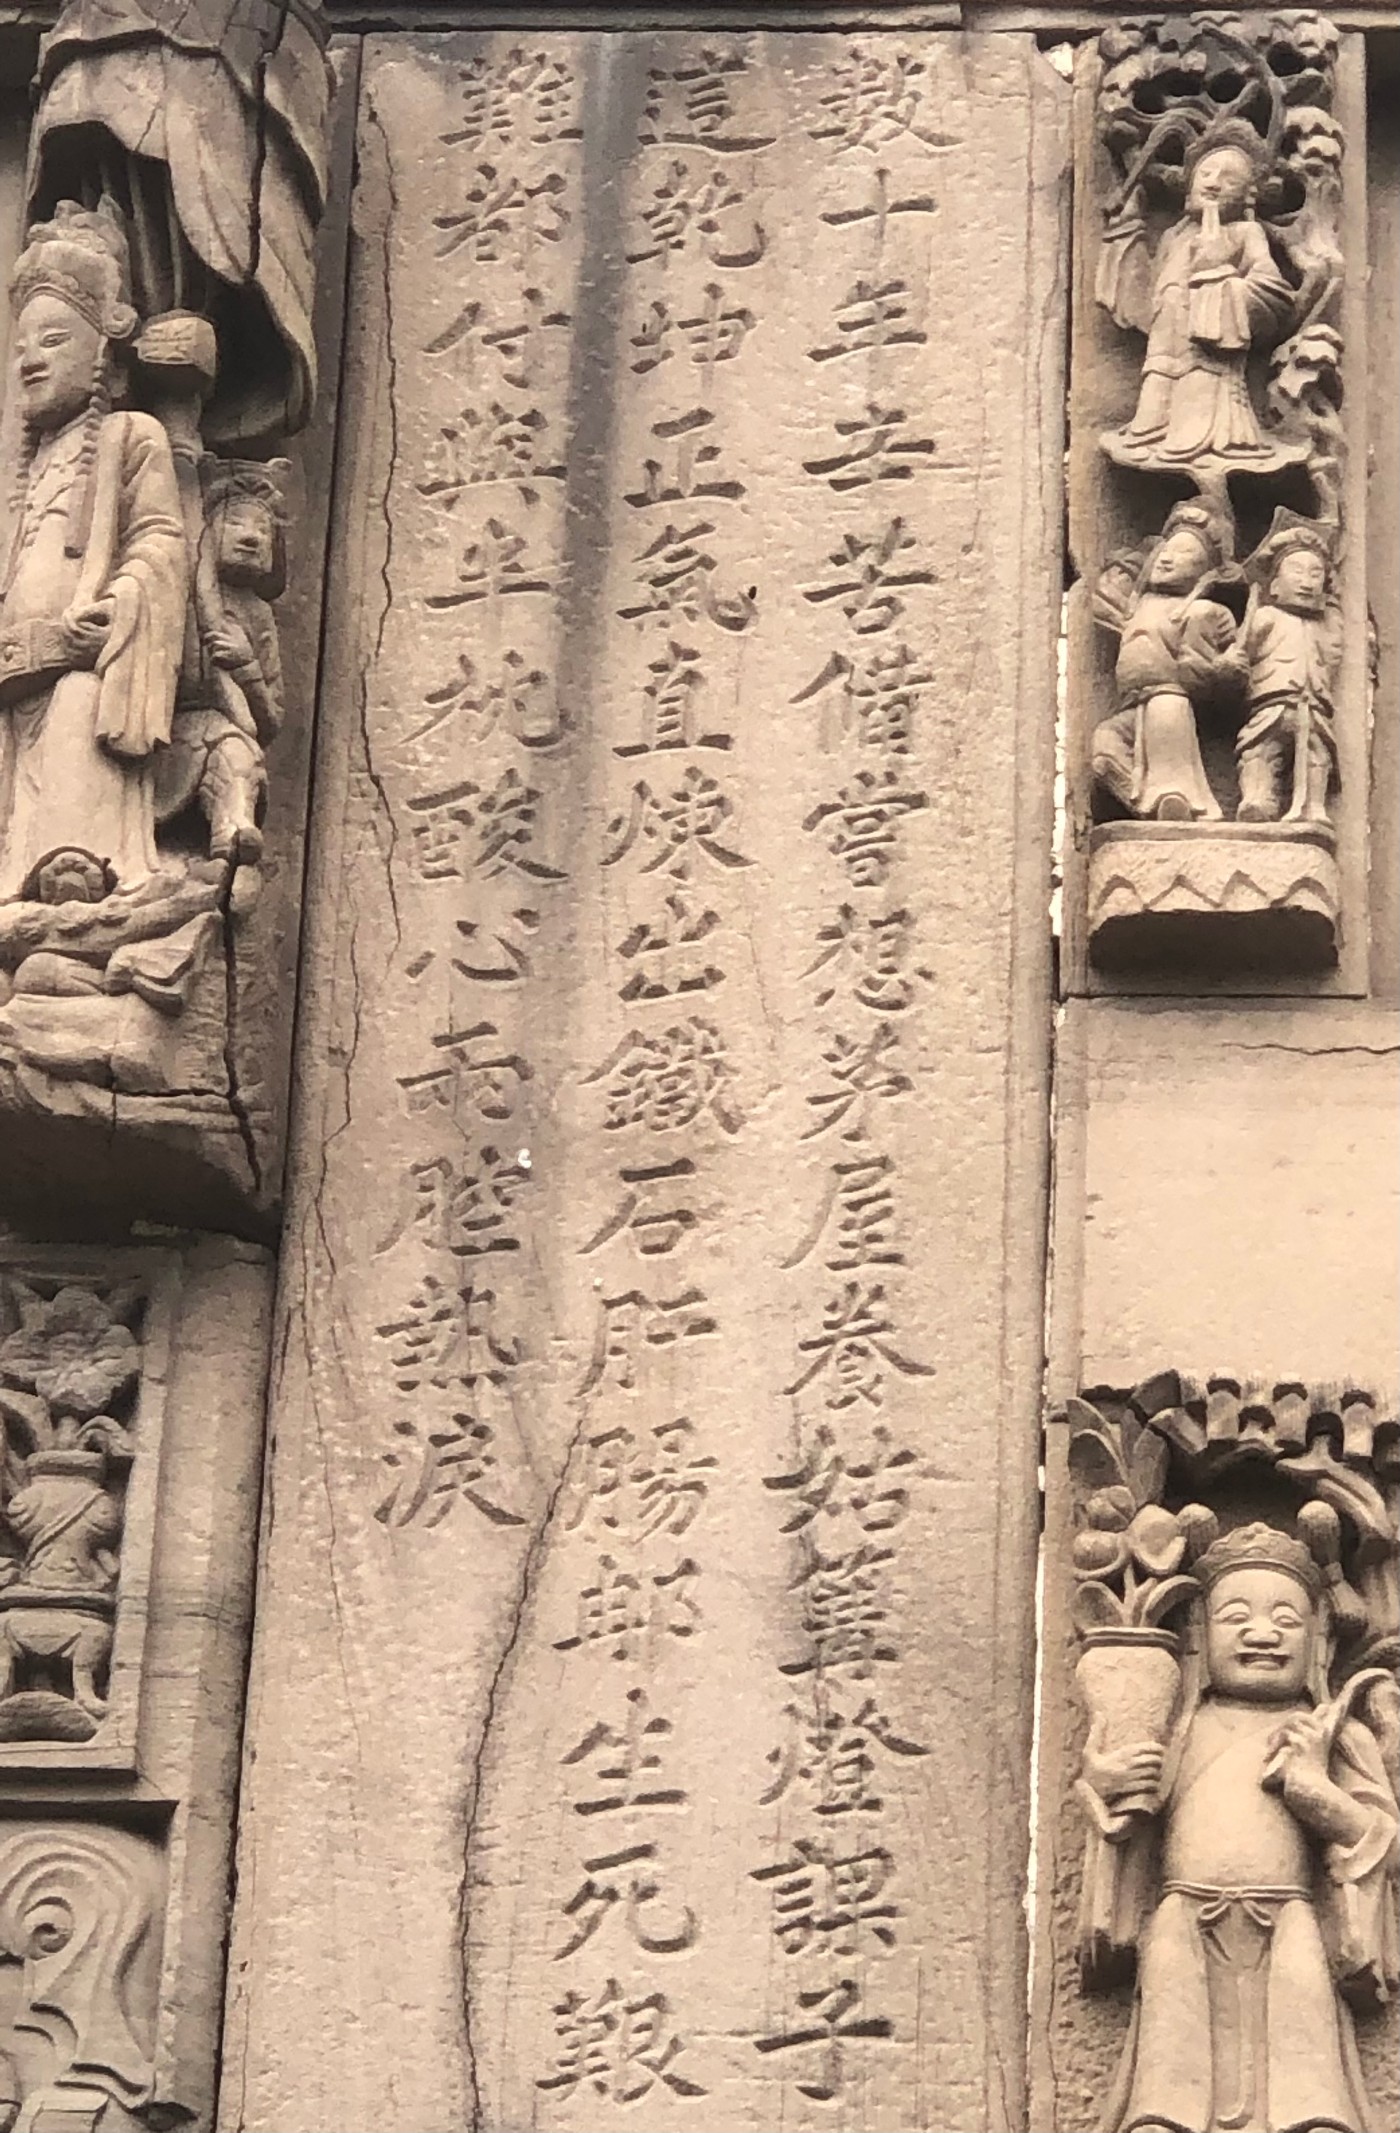 數十年辛苦備嘗想茅屋養姑篝燈課子
這乾坤正氣直煉出鐵石肝腸那生死艱
難都付與半枕酸心兩腔熱淚